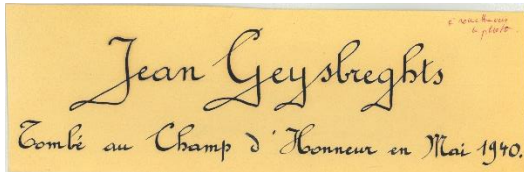 Jean Geysbreghts
Tombé au Champ d'Honneur en Mai 1940.